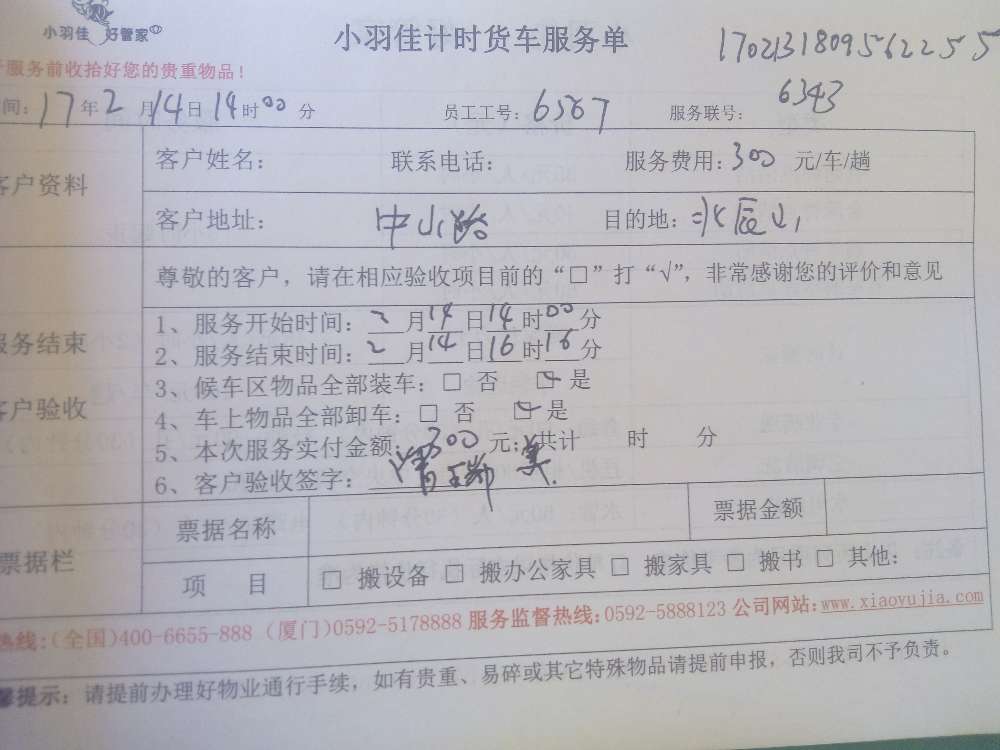 小羽佳 好管家
小羽佳计时货车服务单
170213180956 2255
服务前收拾好您的贵重物品！
间：17年2月14日14时00分 员工工号：6567 服务联号：6343
客户资料
客户姓名： 联系电话： 服务费用：300 元/车/趟
客户地址：中山路 目的地：北辰山
服务结束
客户验收
尊敬的客户，请在相应验收项目前的“□”打“√”，非常感谢您的评价和意见
1、服务开始时间：2月14日14时00分
2、服务结束时间：2月14日16时16分
3、候车区物品全部装车：□ 否 ☑ 是
4、车上物品全部卸车：□ 否 ☑ 是
5、本次服务实付金额：300元；共计 时 分
6、客户验收签字：
票据栏
票据名称 票据金额
项 目 □ 搬设备 □ 搬办公家具 □ 搬家具 □ 搬书 □ 其他：
热线：(全国)400-6655-888 (厦门)0592-5178888 服务监督热线：0592-5888123 公司网站：www.xiaoyujia.com
馨提示：请提前办理好物业通行手续，如有贵重、易碎或其它特殊物品请提前申报，否则我司不予负责。